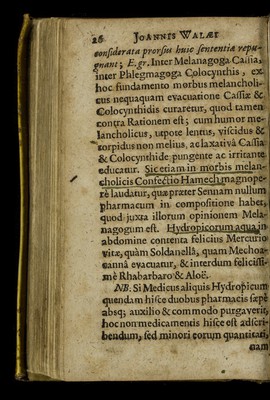 26 JOANNIS WALÆI
considerata prorsus huic sententia repu-
gnant; E. gr. Inter Melanagoga Cassia,
inter Phlegmagoga Colocynthis, ex
hoc fundamento morbus melancholi-
cus nequaquam evacuatione Cassiæ &
Colocynthidis curaretur, quod tamen
contra Rationem est; cum humor me-
lancholicus, utpote lentus, viscidus &
torpidus non melius, ac laxativâ Cassia
& Colocynthide pungente ac irritante
educatur. Sic etiam in morbis melan-
cholicis Confectio Hamech magnope-
re laudatur, quæ præter Sennam nullum
pharmacum in compositione habet,
quod juxta illorum opinionem Mela-
nagogum est. Hydropicorum aqua in
abdomine contenta felicius Mercurio
vitæ, quàm Soldanellâ, quam Mechoa-
cannâ evacuatur, & interdum felicissi-
mè Rhabarbaro & Aloë.
NB. Si Medicus aliquis Hydropicum
quendam hisce duobus pharmacis sæpè
absq; auxilio & commodo purgaverit,
hoc non medicamentis hisce est adscri-
bendum, sed minori eorum quantitati,